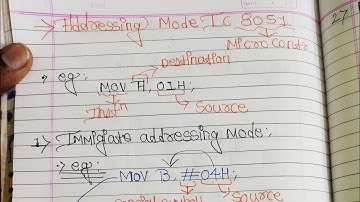 → Addressing Mode: IC 8051
Micro Contr.
Destination
• eg:
MOV A, 01H;
Instn
Source
1) Immigiate addressing Mode:
• eg:
MOV B, #04H;
Special symbol
Source
27